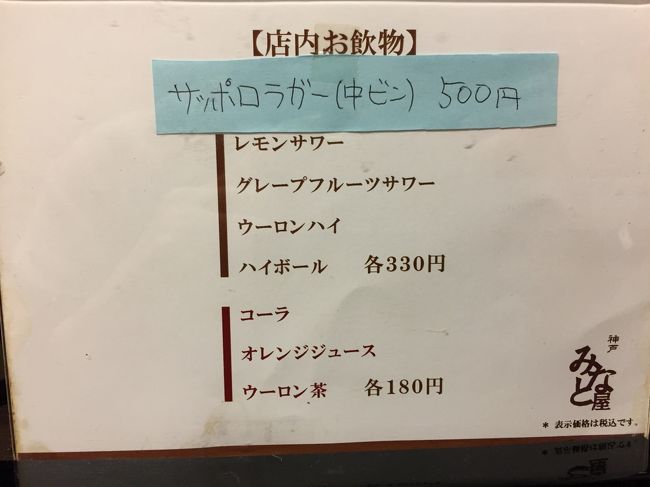 【店内お飲物】
サッポロラガー(中ビン) 500円
レモンサワー
グレープフルーツサワー
ウーロンハイ
ハイボール 各330円
コーラ
オレンジジュース
ウーロン茶 各180円
神戸
みなと屋
* 表示価格は税込です。